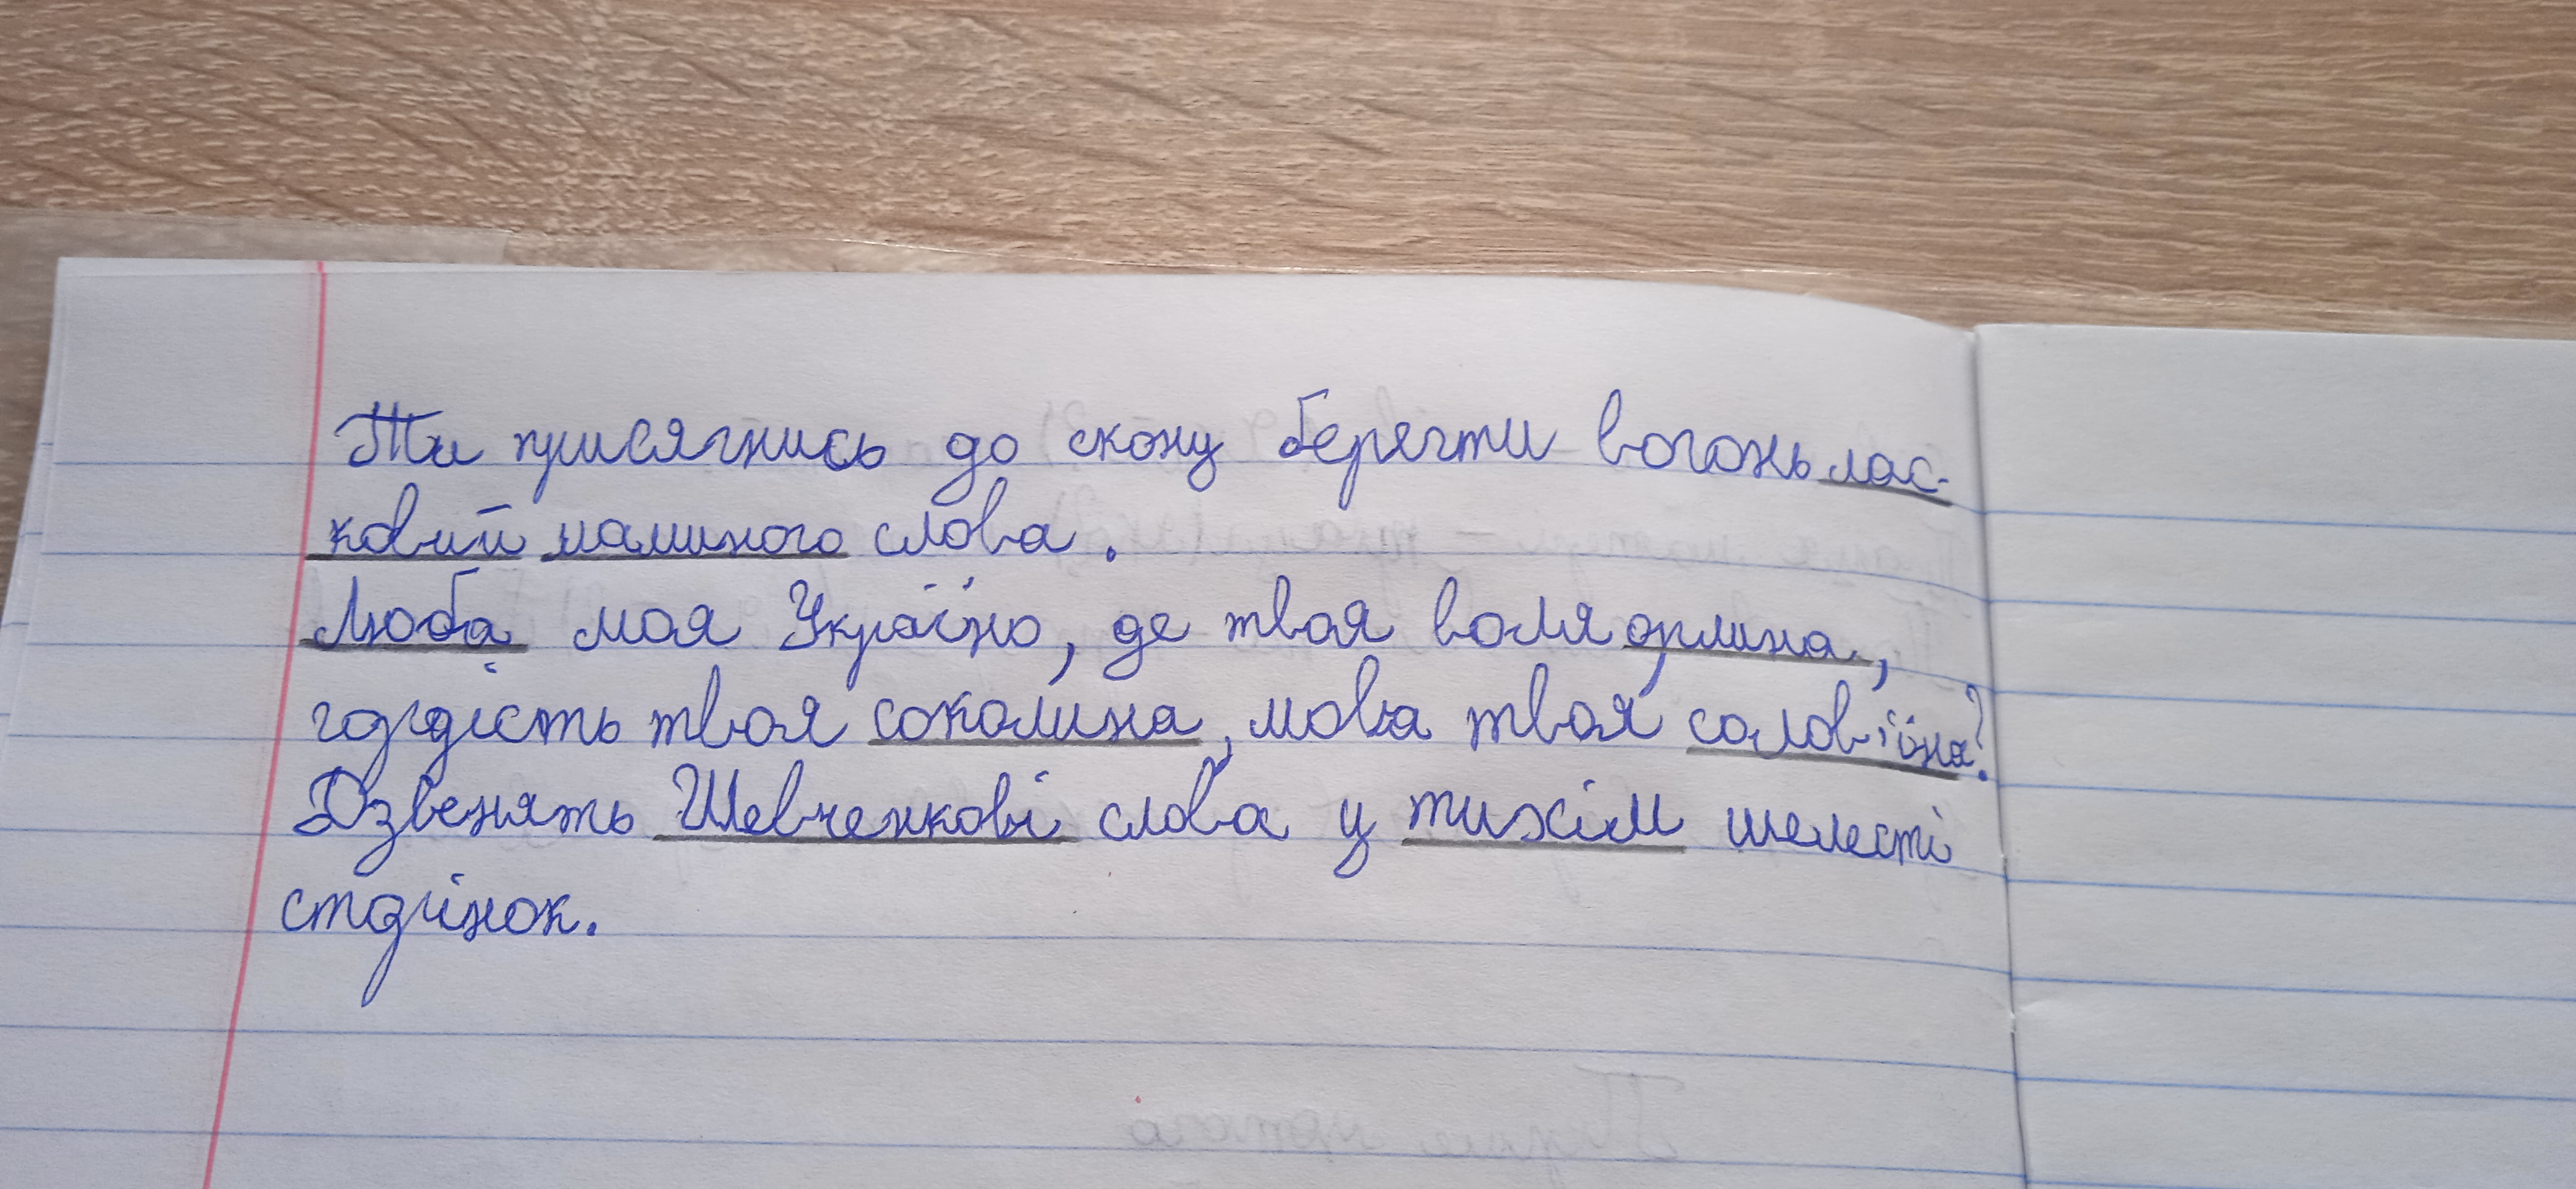 Ти присягнись до скону берегти вогонь лас-
ковий маминого слова.
Люба моя Україно, де твоя воля орлина,
гордість твоя соколина, мова твоя солов'їна?
Дзвенять Шевченкові слова у тихім шелесті
сторінок.